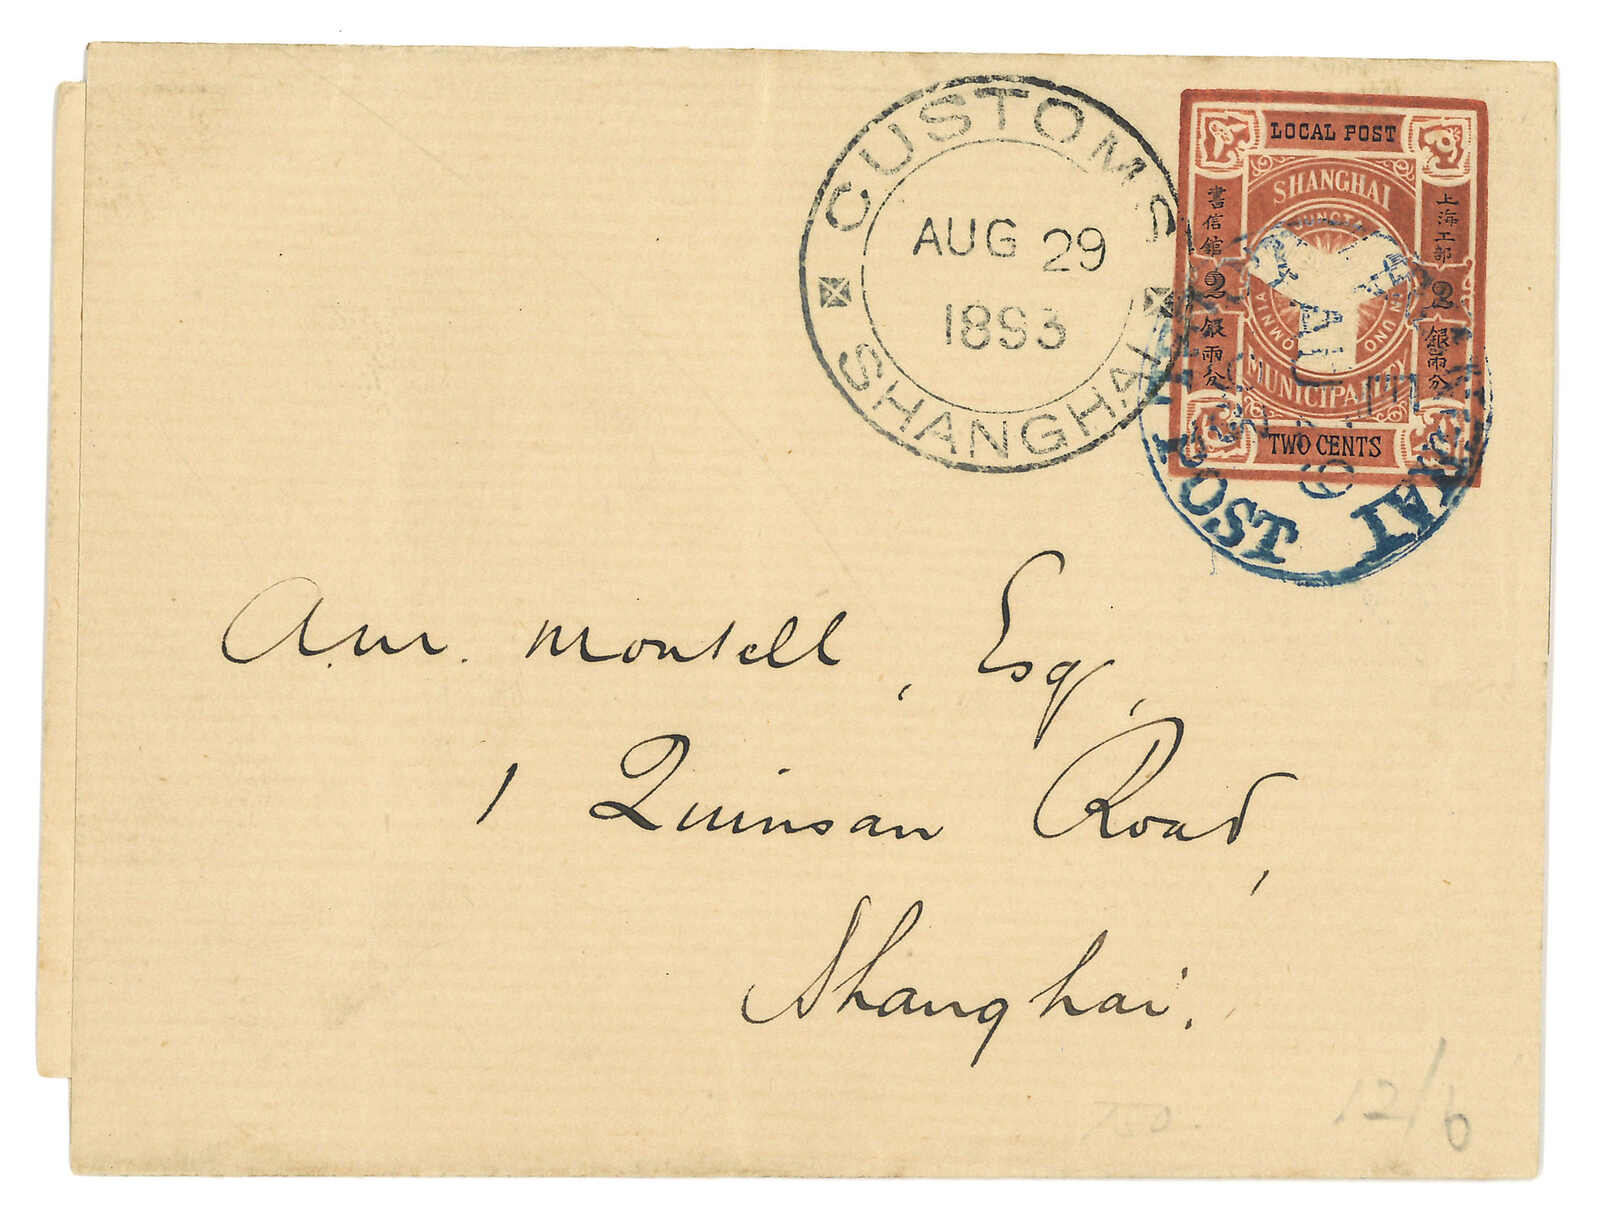 CUSTOMS
AUG 29
1893
SHANGHAI
LOCAL POST
SHANGHAI
MUNICIPALITY
OMNIA
上海工部
書信館
銀兩分
銀兩分
TWO CENTS
LOCAL POST
A.M. Montell, Esq,
1 Quinsan Road,
Shanghai.
12/6